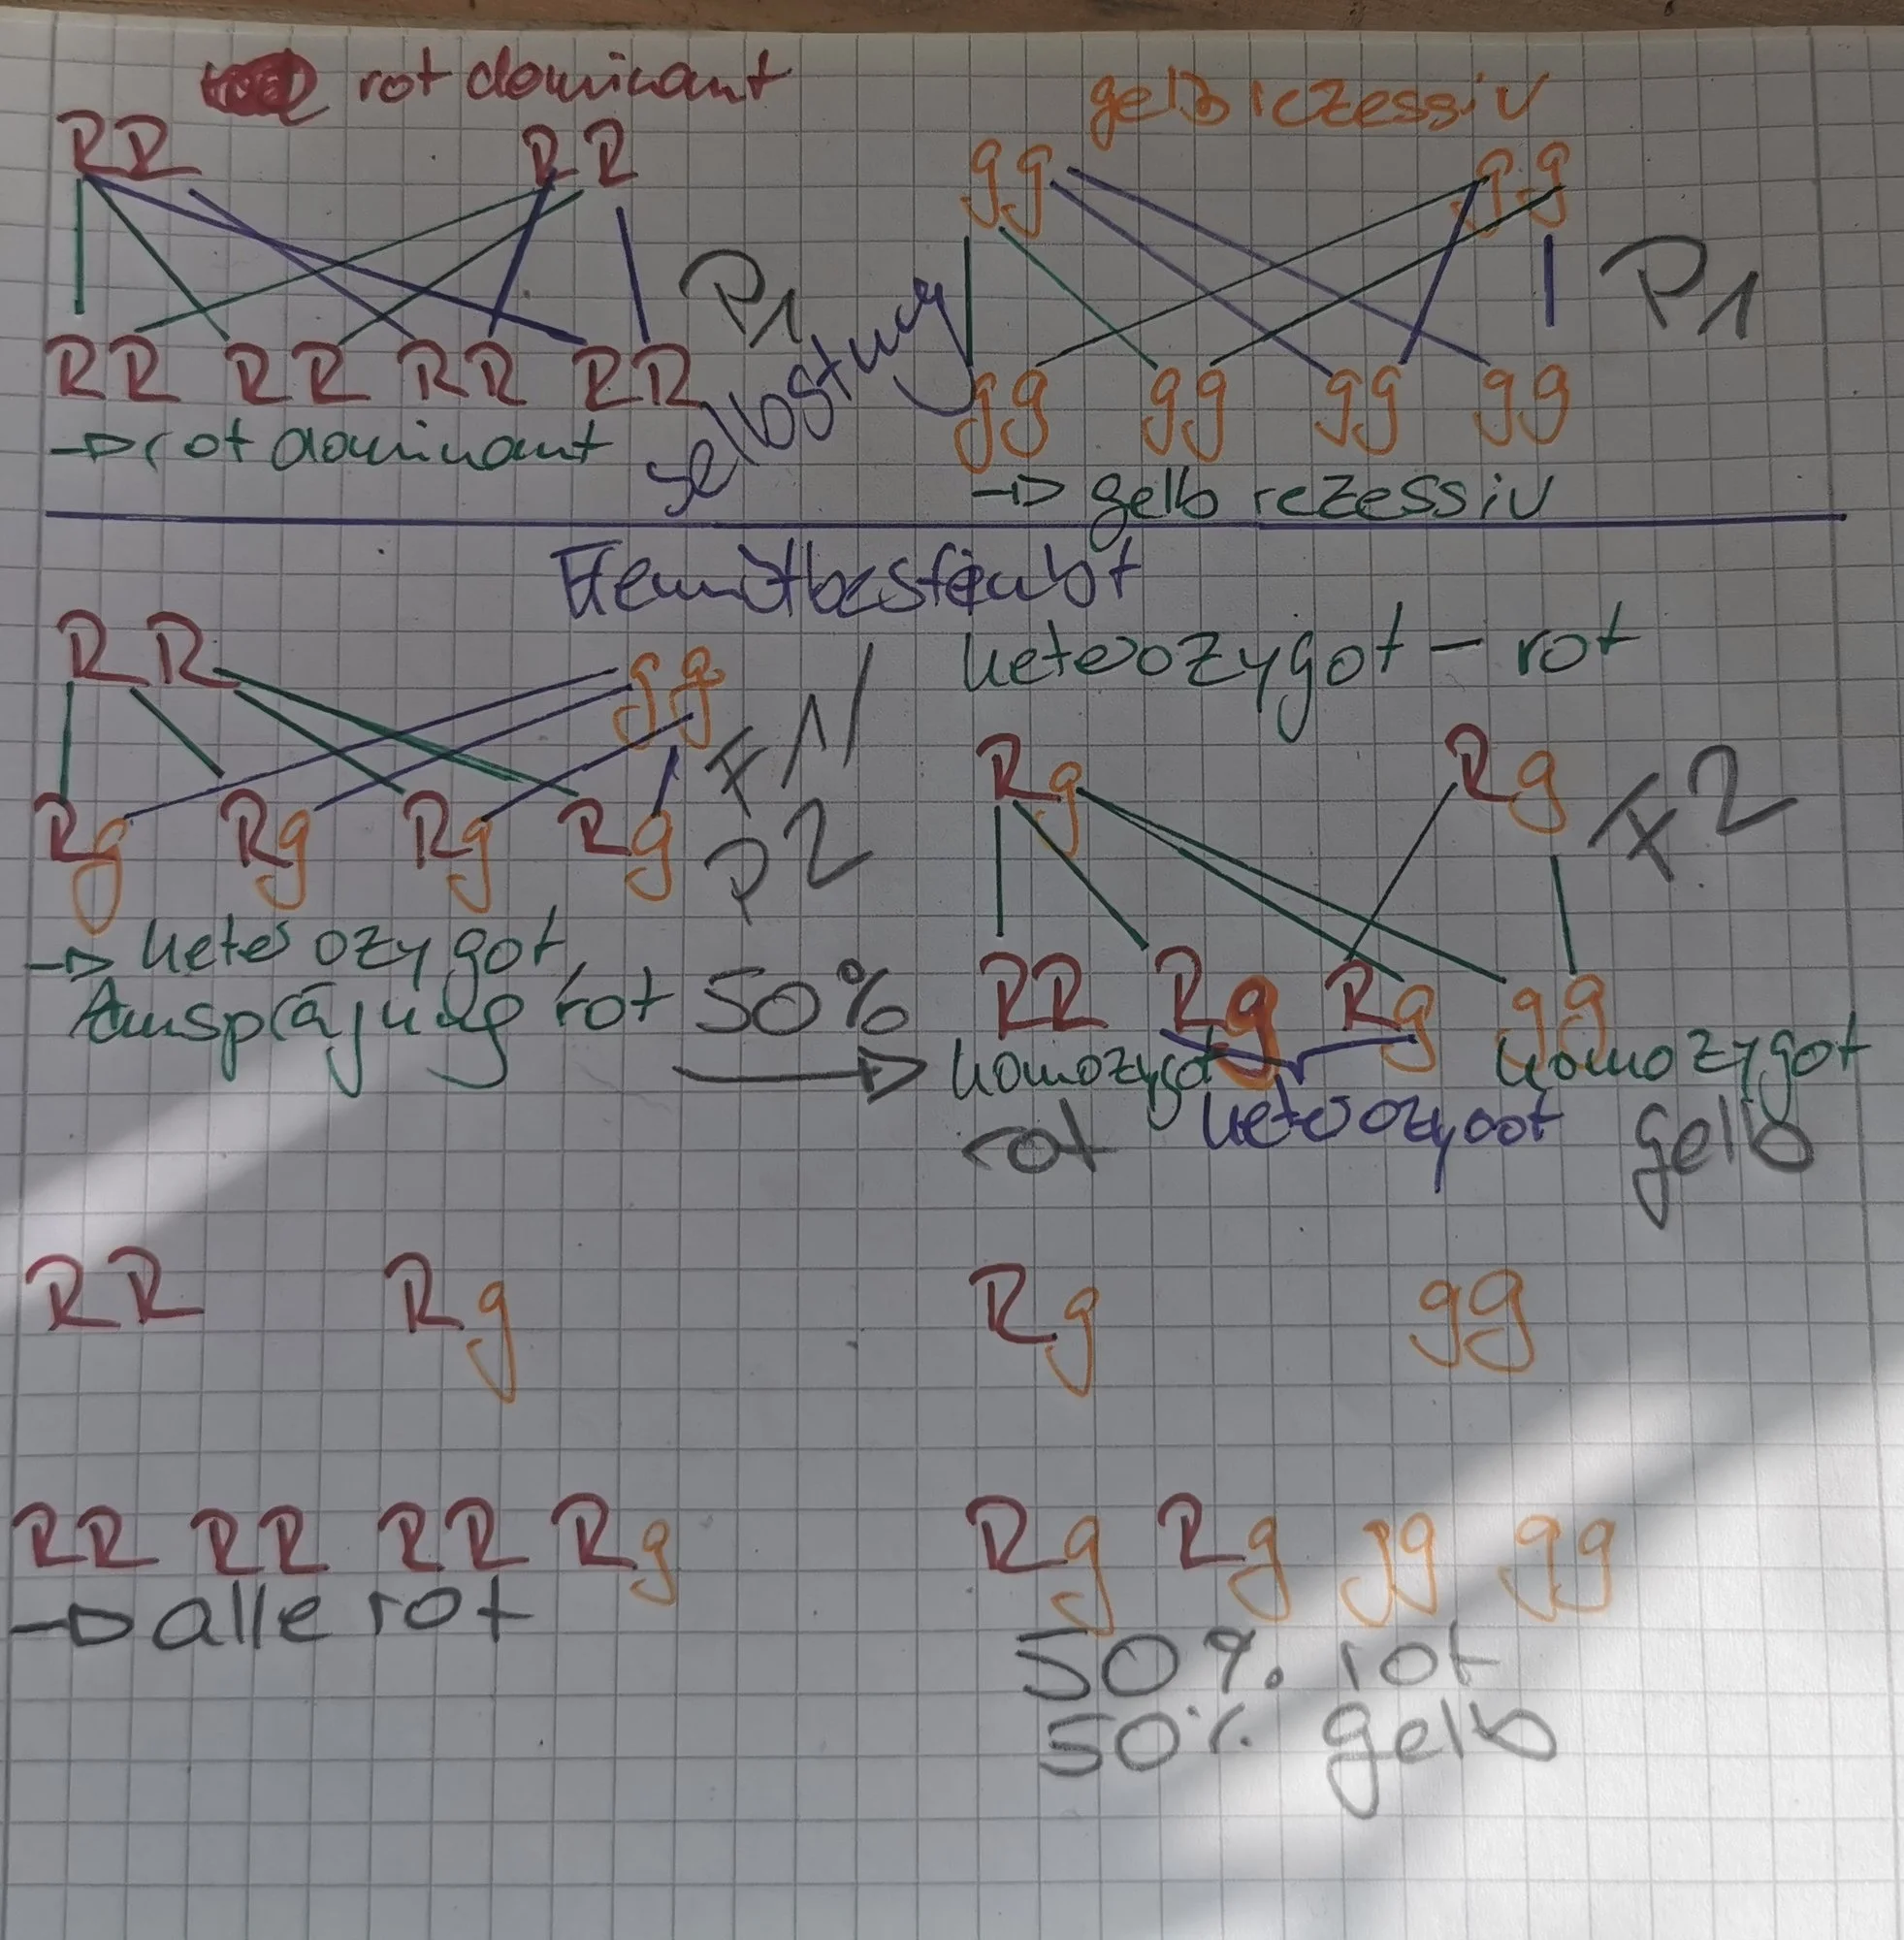 rot dominant
RR RR
P1
RR RR RR RR
→ rot dominant
selbstung
gelb rezessiv
gg gg
P1
gg gg gg gg
→ gelb rezessiv
RR gg
F1/
Rg Rg Rg Rg
P2
→ heterozygot,
Ausprägung rot 50%
→
heterozygot - rot
Rg Rg
F2
RR Rg Rg gg
homozygot heterozygot homozygot
rot gelb
RR Rg
RR RR RR Rg
→ alle rot
Rg gg
Rg Rg gg gg
50% rot
50% gelb